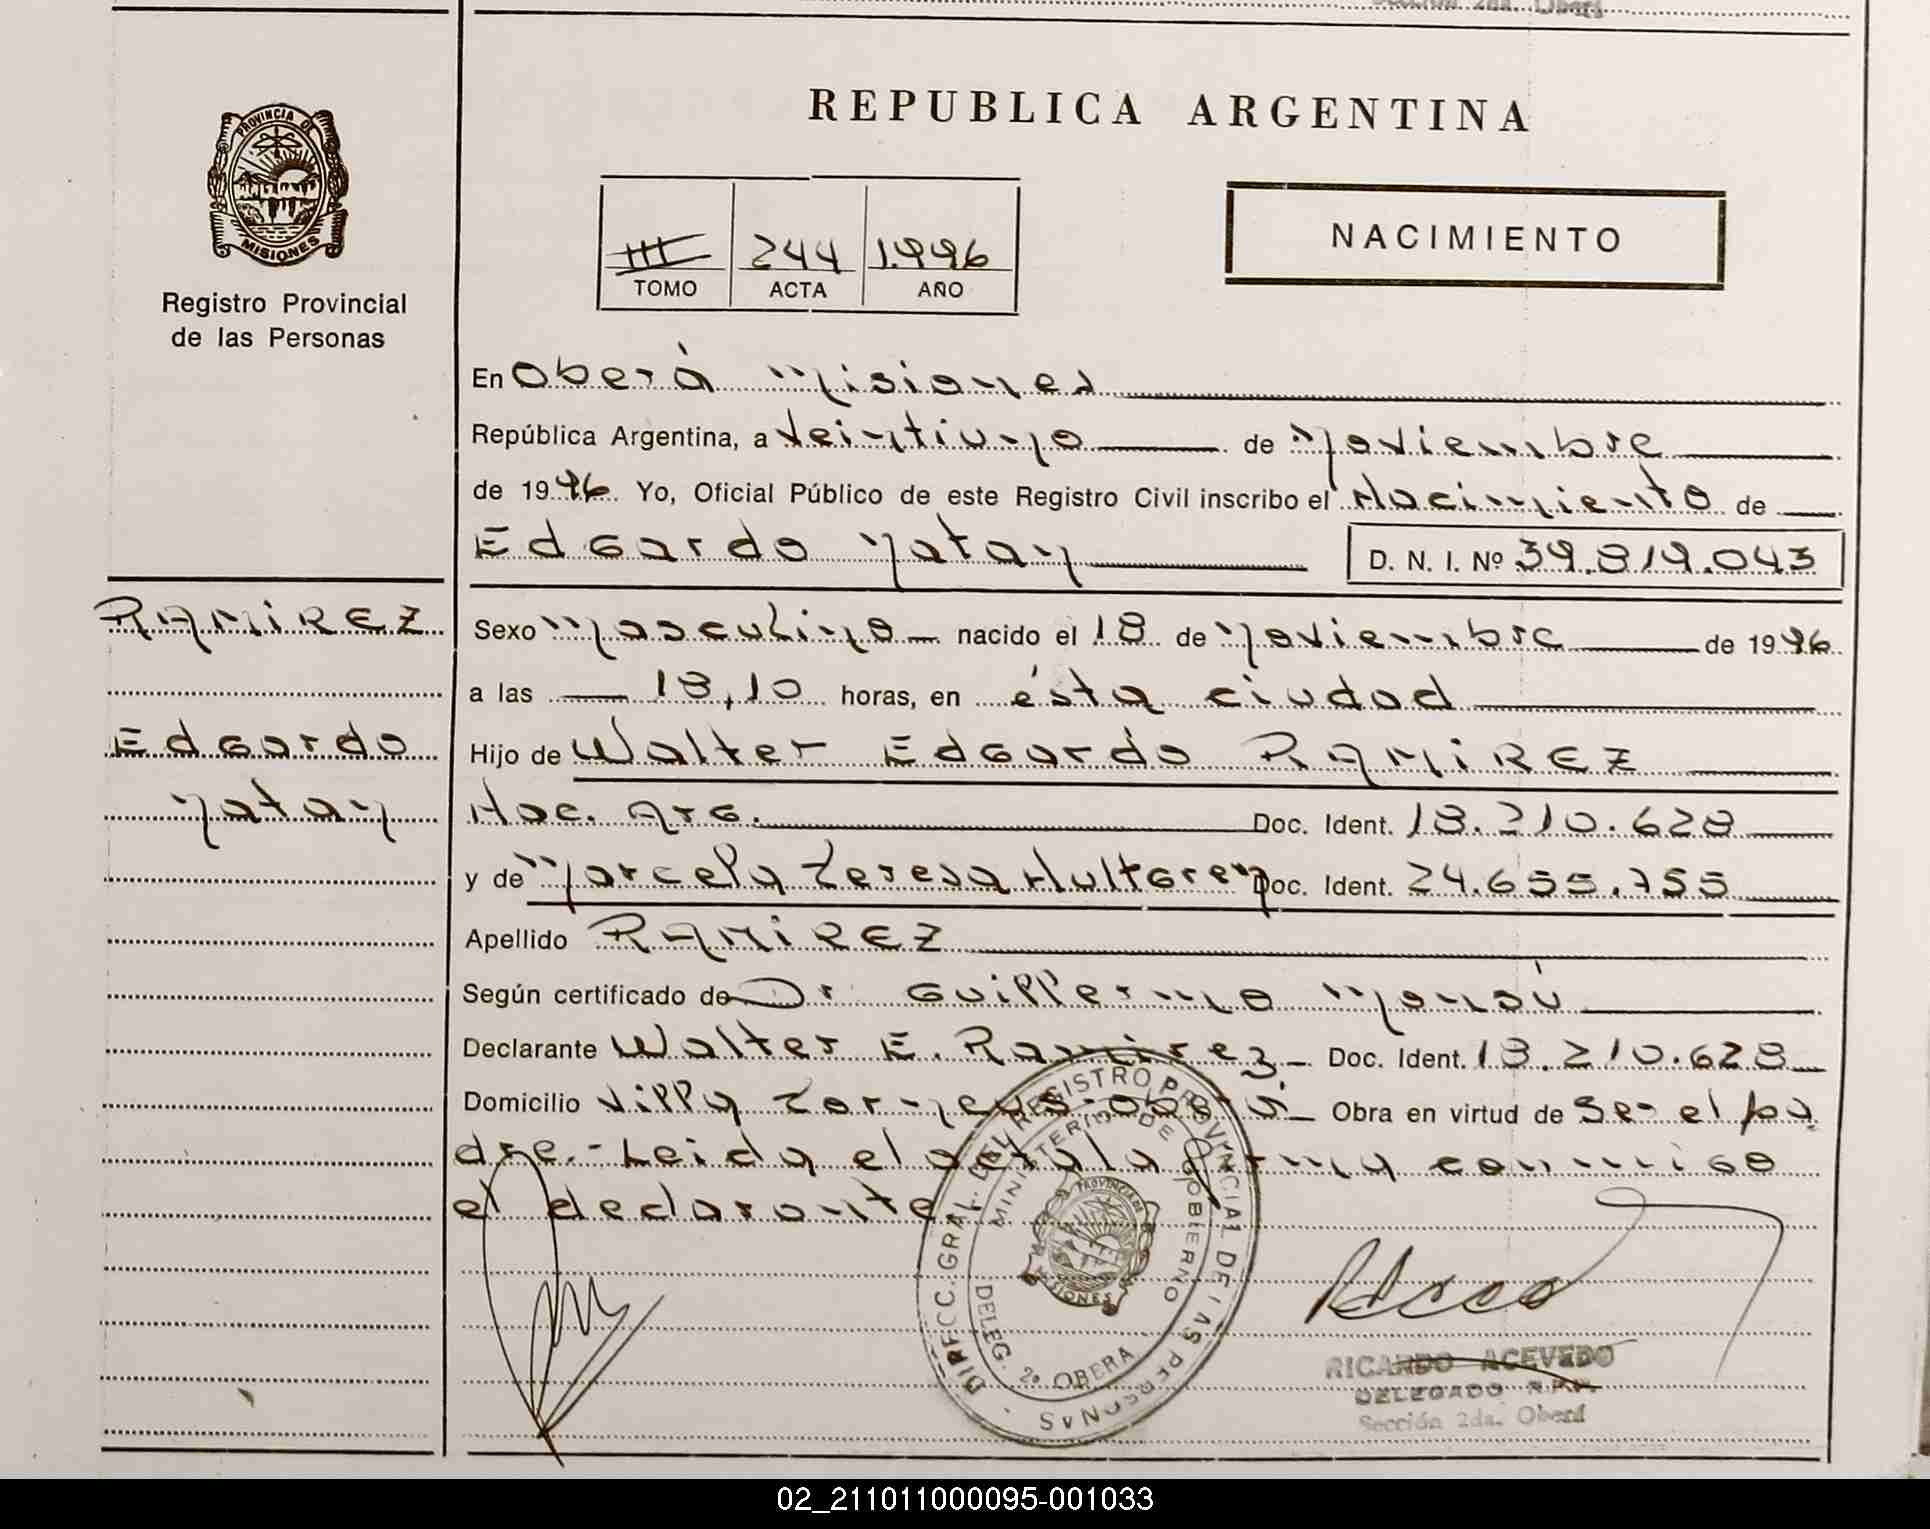 Sección 2da. Oberá
PROVINCIA DE
MISIONES
Registro Provincial
de las Personas
REPUBLICA ARGENTINA
III 244 1.996
TOMO ACTA AÑO
NACIMIENTO
En Oberá Misiones
República Argentina, a veintiuno de Noviembre
de 1996 Yo, Oficial Público de este Registro Civil inscribo el Nacimiento de
Edgardo Natan D. N. I. Nº 39.819.043
RAMIREZ
Edgardo
Natan
Sexo Masculino nacido el 18 de Noviembre de 1996
a las 18,10 horas, en ésta ciudad
Hijo de Walter Edgardo RAMIREZ
Nac. Arg. Doc. Ident. 18.210.628
y de Marcela Teresa Hultgren Doc. Ident. 24.655.755
Apellido RAMIREZ
Según certificado de Dr Guillermo Monsú
Declarante Walter E. Ramirez Doc. Ident. 18.210.628
Domicilio Villa Oberá Obra en virtud de Ser el pa
dre.- Leida el acta la firma conmigo
el declarante.
DIRECC. GRAL. DEL REGISTRO PROVINCIAL DE LAS PERSONAS
MINISTERIO DE GOBIERNO
PROVINCIA DE
MISIONES
DELEG. 2ª OBERA
RICARDO ACEVEDO
DELEGADO R.P.P.
Sección 2da. Oberá
02_211011000095-001033